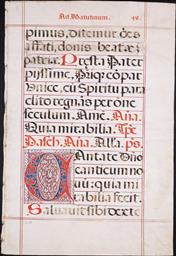 Ad Matutinum. 49.
pimus, Ditemur Đes
affati, donis beatæ
patriæ. Præsta Pater
piissime, Patriq; cōpar
Vnice, cū Spiritu para
clito regnās per ōne
seculum. Amē. Aña.
Quia mirabilia. Tpe
Pasch. Aña. Alla. ps.
Cantate Dño
canticum no
uū: quia mi
rabilia fecit.
Saluauit sibi dexte